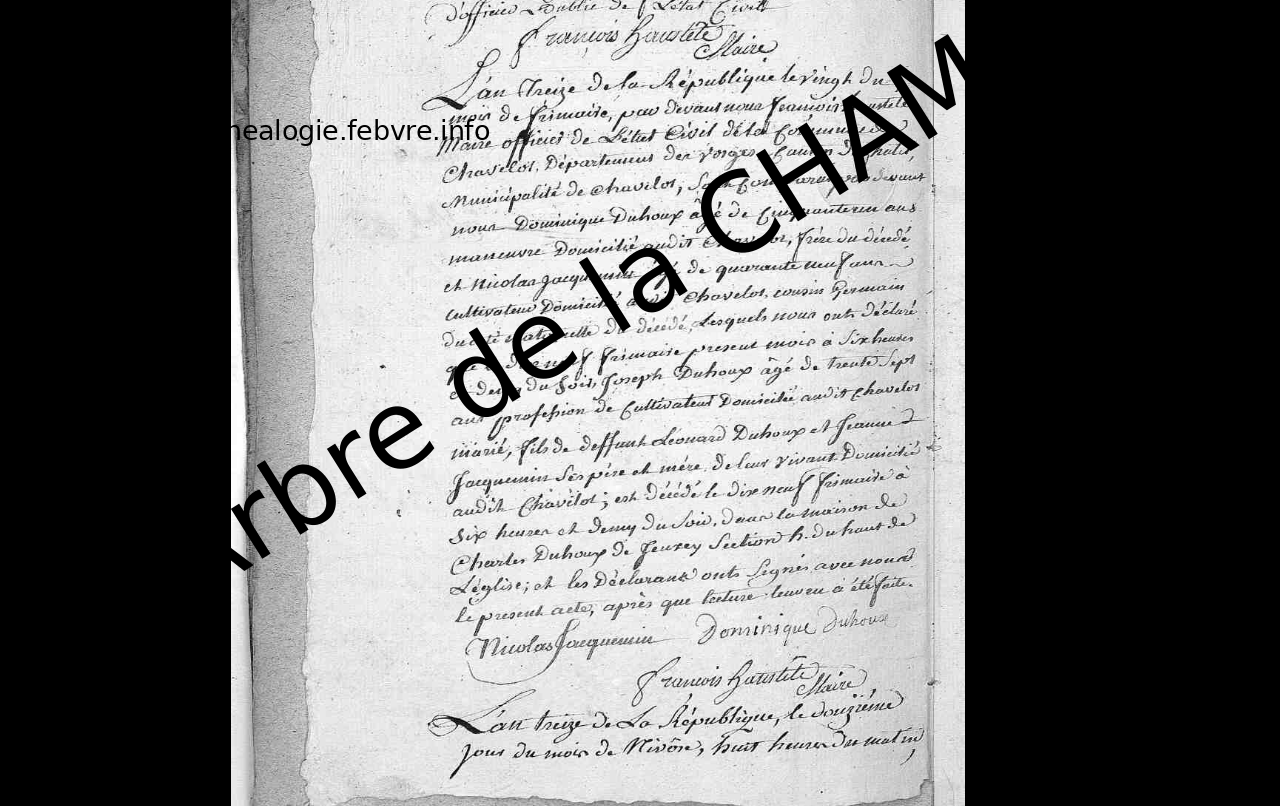 d'officier Public de L'état Civil
François Haustête
Maire
L'an treize de la République le vingt du
mois de frimaire, par devant nous françois haustête
Maire officier de L'état Civil de la Commune de
Chavelot, Département des Vosges, Canton de Chatel,
Municipalité de Chavelot, Sont Comparus par devant
nous Dominique Duhoux âgé de Cinquante un ans
manœuvre Domicilié audit Chavelot, frère du décédé
et Nicolas Jacquemin âgé de quarante neuf ans
cultivateur Domicilié audit Chavelot, cousin Germain
du coté maternelle du décédé, Lesquels nous ont déclaré
que le dix neuf frimaire present mois à Six heures
et demy du Soir, Joseph Duhoux âgé de trente Sept
ans profession de Cultivateur Domicilié audit Chavelot
marié, fils de deffunt Léonard Duhoux et Jeanne
Jacquemin Ses père et mère, de leur vivant Domicilié
audit Chavelot; est décédé le dix neuf frimaire à
Six heures et demy du Soir, dans la maison de
Charles Duhoux de Jeuxey Section h. du haut de
L'église; et les Déclarants onts Signés avec nous
le present acte, après que lecture leur en a été faite.
Nicolas Jacquemin Dominique Duhoux
François Haustête
Maire
L'an treize de La République, le douzième
jour du mois de Nivôse, huit heures du matin,
nealogie.febvre.info
Arbre de la CHAM